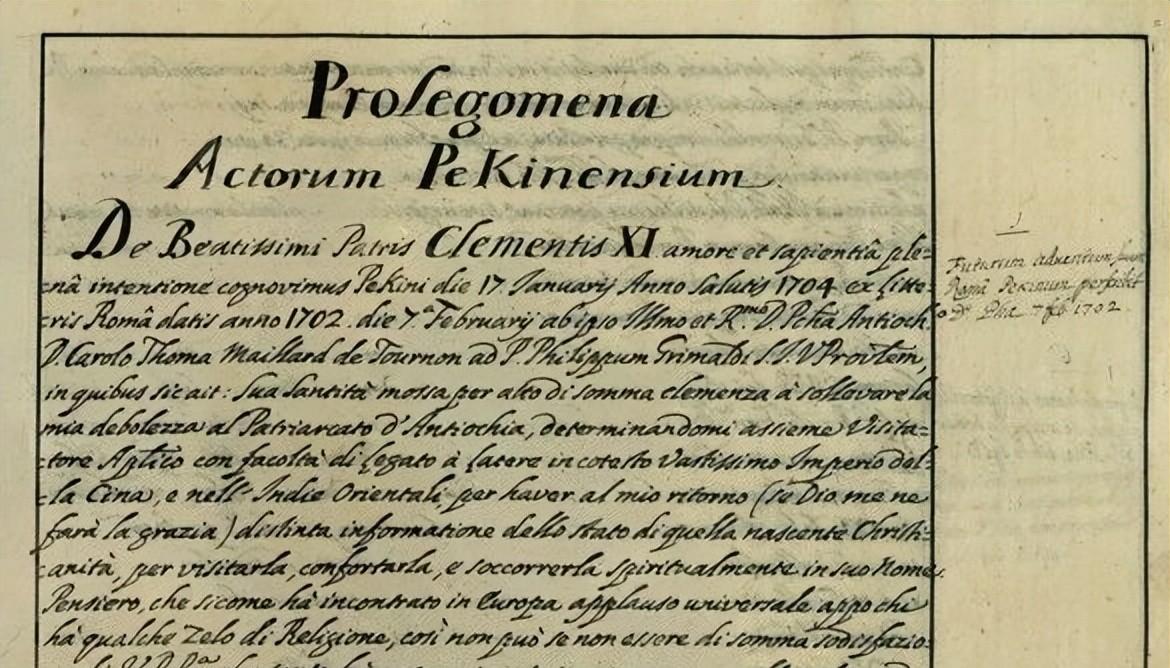 Prolegomena
Actorum Pekinensium
De Beatissimi Patris Clementis XI amore et sapientiâ ple=
=nâ intentione cognovimus Pekini die 17. Januarij Anno Salutis 1704 ex litte=
=ris Româ datis anno 1702. die 7.a Februarij ab ipso Illmo et R.mo D. Pchâ Antioch.
D. Carolo Thoma Maillard de Tournon ad P. Philippum Grimaldi S.I. V Provlem,
in quibus sic ait: Sua Santità mossa per alto di somma clemenza à sollevare la
mia debolezza al Patriarcato d'Antiochia, determinandomi assieme Visita=
=tore Aplico con facoltà di legato à latere in cotesto Vastissimo Imperio del=
=la Cina, e nell' Indie Orientali, per haver al mio ritorno (se Dio me ne
farà la grazia) distinta informatione dello stato di quella nascente Christi=
=anità, per visitarla, confortarla, e soccorrerla spiritualmente in suo Nome.
Pensiero, che sicome hà incontrato in Europa applauso universale appo chi
hà qualche Zelo di Religione, così non può se non essere di somma sodisfazio=
1
Futurum adventum suum
Româ Pekinum perscribit
D. 7 feb 1702.